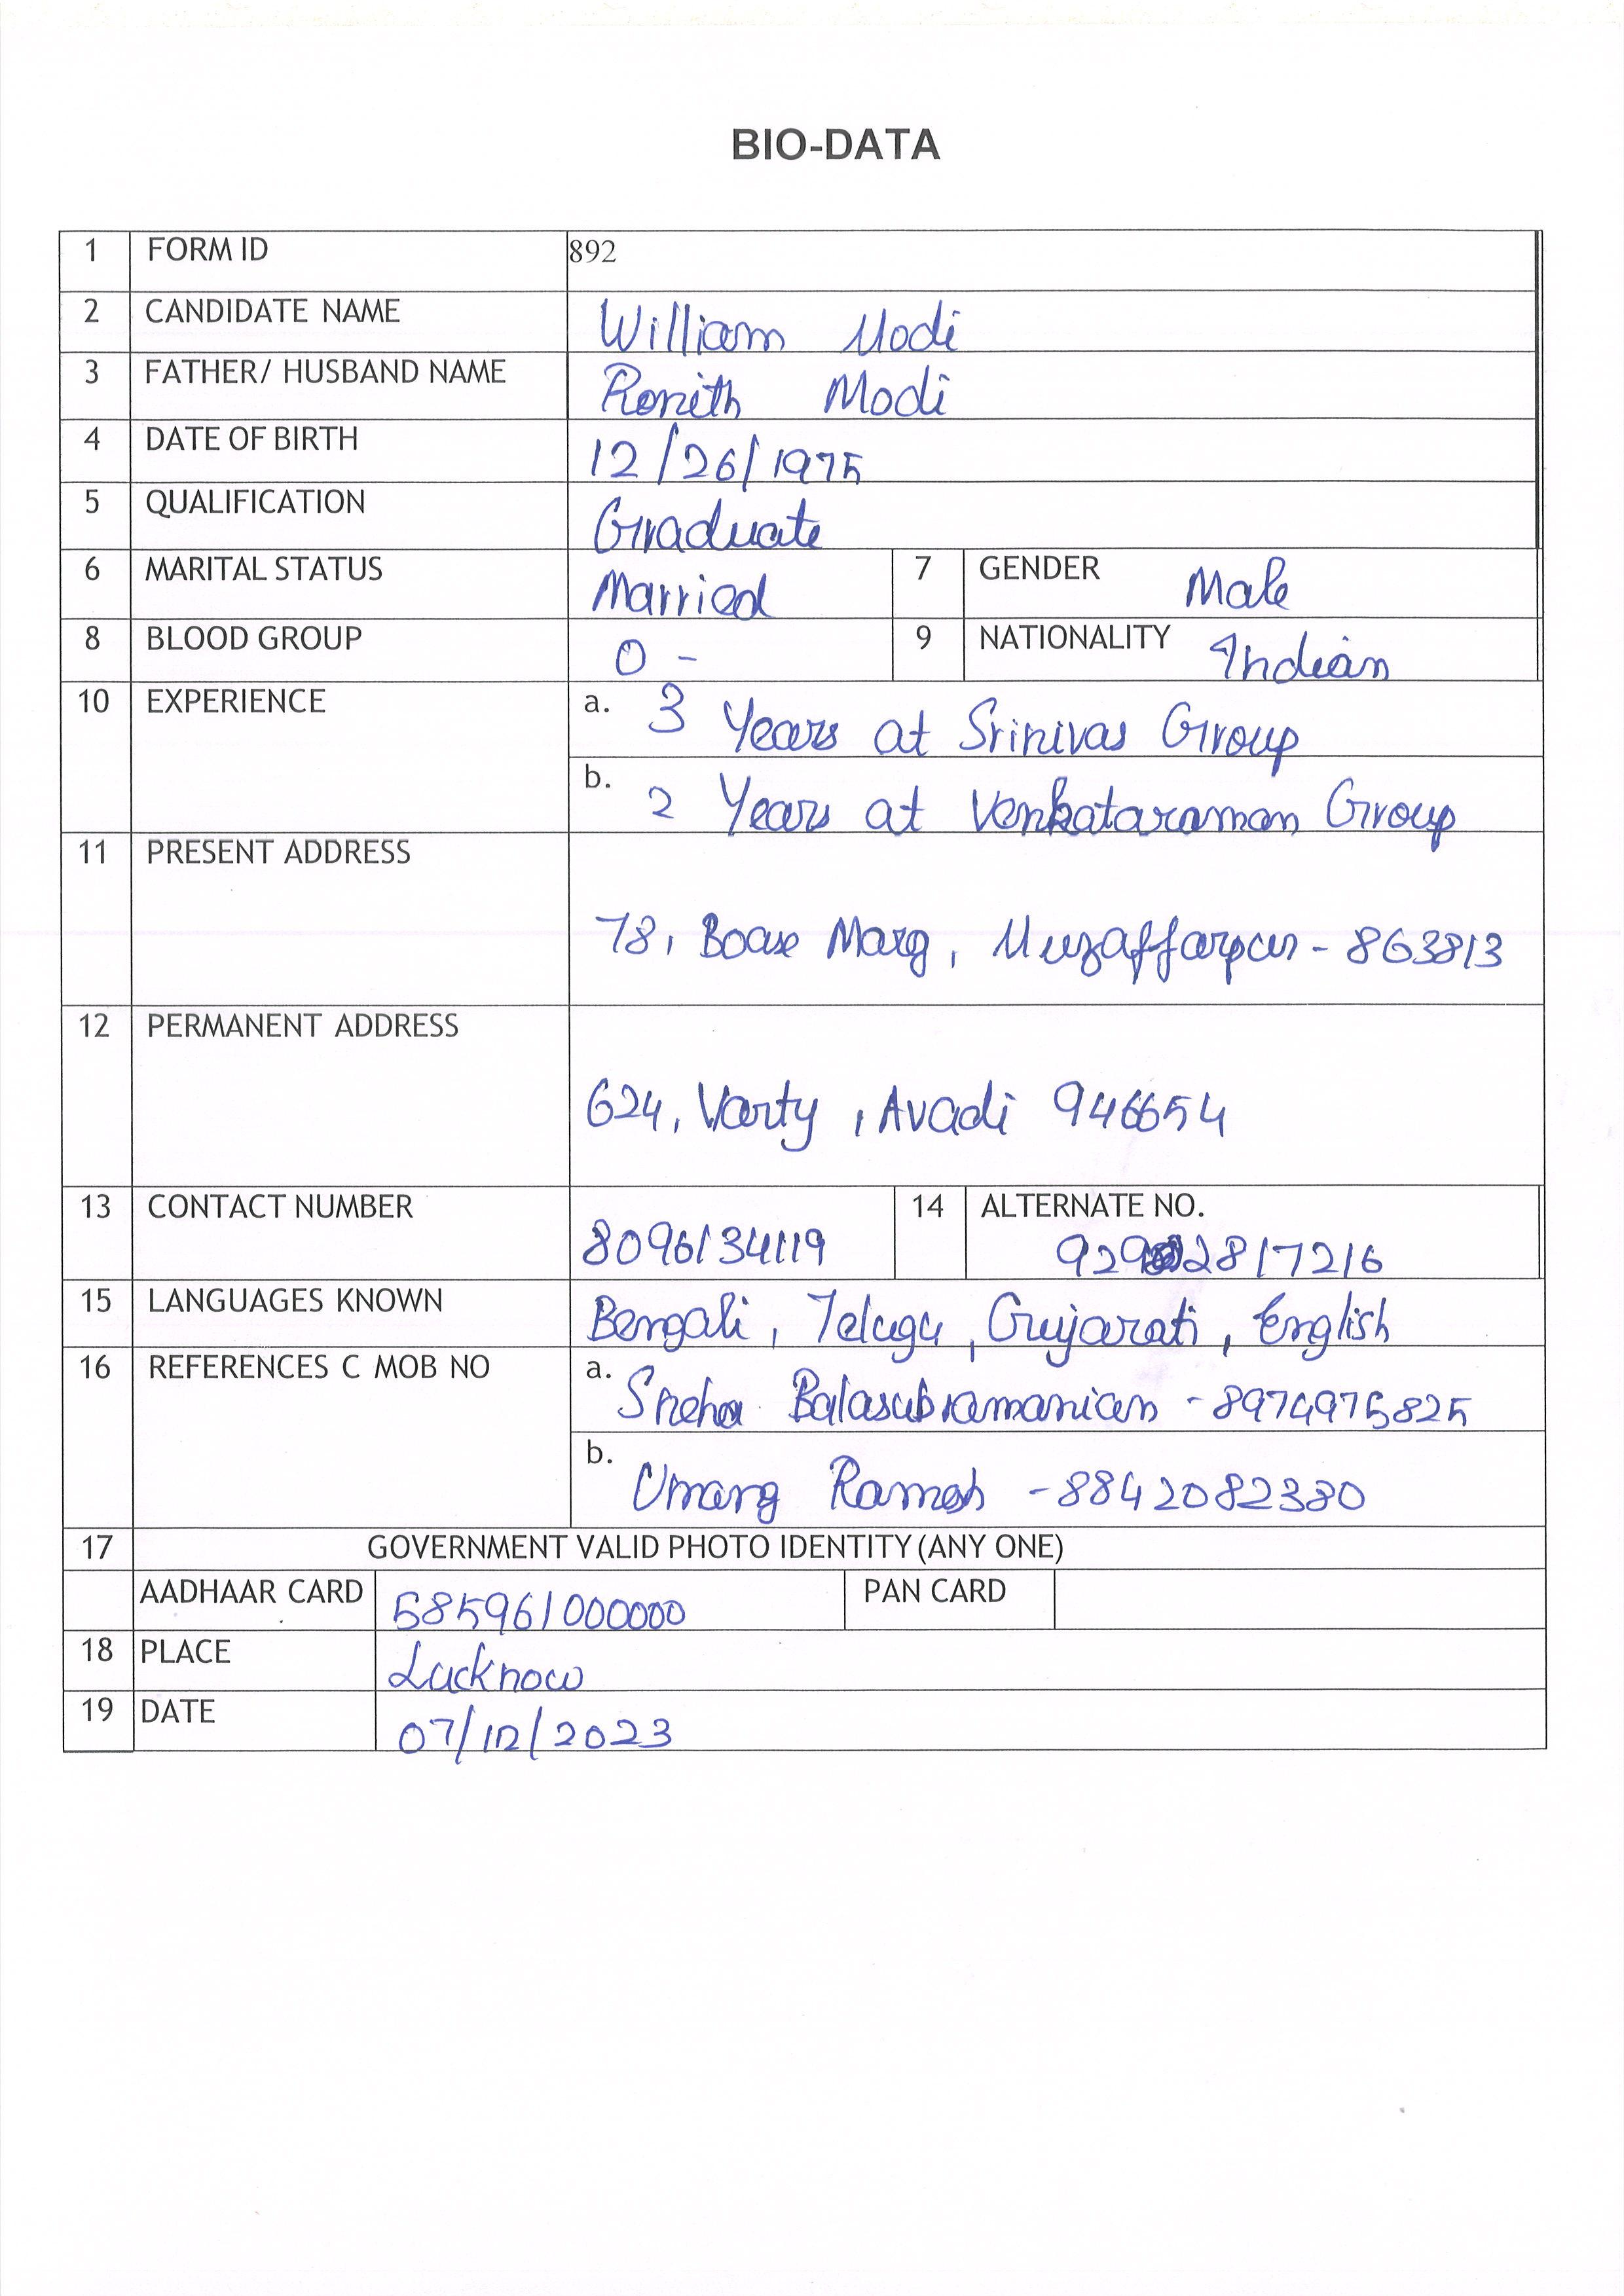 BIO-DATA
1 FORM ID 892
2 CANDIDATE NAME William Modi
3 FATHER/ HUSBAND NAME Ronith Modi
4 DATE OF BIRTH 12/26/1975
5 QUALIFICATION Graduate
6 MARITAL STATUS Married 7 GENDER Male
8 BLOOD GROUP O - 9 NATIONALITY Indian
10 EXPERIENCE a. 3 Years at Srinivas Group
b. 2 Years at Venkataraman Group
11 PRESENT ADDRESS
78, Boase Marg, Muzaffarpur - 863813
12 PERMANENT ADDRESS
624, Varty, Avadi 946654
13 CONTACT NUMBER 8096134119 14 ALTERNATE NO.
15 LANGUAGES KNOWN Bengali, Telugu, Gujarati, English
16 REFERENCES C MOB NO a. Sneha Balasubramanian - 8974975825
b. Umang Ramesh - 8842082330
17 GOVERNMENT VALID PHOTO IDENTITY (ANY ONE)
AADHAAR CARD 585961000000 PAN CARD
18 PLACE Lucknow
19 DATE 07/12/2023